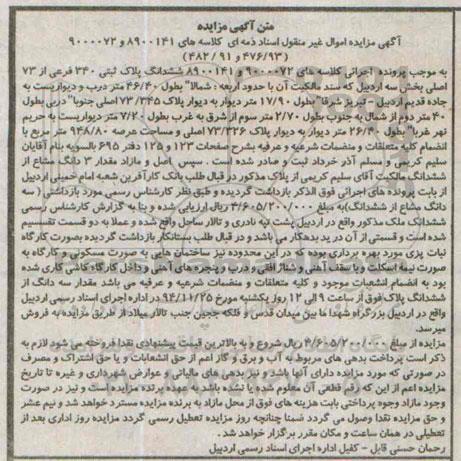 متن آگهی مزایده
آگهی مزایده اموال غیر منقول اسناد ذمه ای کلاسه های ۸۹۰۰۱۴۱ و ۹۰۰۰۰۷۲
(۴۷۶/۹۳ و ۴۸۲/۹۱)
به موجب پرونده اجرائی کلاسه های ۹۰۰۰۰۷۲ و ۸۹۰۰۱۴۱ ششدانگ پلاک ثبتی ۳۴۰ فرعی از ۷۳
اصلی بخش سه اردبیل که سند مالکیت آن با حدود اربعه : شمالا" بطول ۴۶/۴۰ متر درب و دیواریست به
جاده قدیم اردبیل - تبریز شرقا" بطول ۱۷/۹۰ متر دیوار به دیوار پلاک ۷۳/۳۴۵ اصلی جنوبا" دربی بطول
۴۰ متر دوم از شمال به جنوب بطول ۲/۷۰ متر سوم از شرق به غرب بطول ۷/۲۰ متر دیواریست به حریم
نهر غربا" بطول ۲۶/۴۰ متر دیوار به دیوار پلاک ۷۳/۳۲۶ اصلی و مساحت عرصه ۹۴۸/۸۰ متر مربع با
انضمام کلیه متعلقات و منضمات شرعیه و عرفیه بشرح صفحات ۱۲۳ و ۱۲۵ دفتر ۶۹۵ بالسویه بنام آقایان
سلیم کریمی و مسلم آذر خرداد ثبت و صادر شده است . سپس اصل و مازاد مقدار ۳ دانگ مشاع از
ششدانگ مالکیت آقای سلیم کریمی از پلاک مذکور در قبال طلب بانک کارآفرین شعبه امام خمینی اردبیل
از بابت پرونده های اجرائی فوق الذکر بازداشت گردیده و طبق نظر کارشناس رسمی مورد بازداشتی ( سه
دانگ مشاع از ششدانگ)به مبلغ ۴/۶۰۵/۲۰۰/۰۰۰ ریال ارزیابی شده و بنا به گزارش کارشناس رسمی
ششدانگ ملک مذکور واقع در اردبیل پشت تپه نادری و تالار ساحل واقع شده و عملا به دو قسمت تقسیم
شده است و قسمتی از آن در ید بدهکار می باشد و در قبال طلب بستانکار بازداشت گردیده بصورت کارگاه
نبات پزی مورد بهره برداری بوده که در این محدوده نیز ساختمان هایی به صورت مسکونی و کارگاه به
صورت نیمه اسکلت و با سقف آهنی و شناژ افقی و درب و پنجره های آهنی و داخل کارگاه کاشی کاری شده
بود به انضمام انشعابات موجود و کلیه متعلقات و منضمات شرعیه و عرفیه می باشد مقدار سه دانگ از
ششدانگ پلاک فوق از ساعت ۹ الی ۱۲ روز یکشنبه مورخ ۹۴/۱۱/۲۵ در اداره اجرای اسناد رسمی اردبیل
واقع در اردبیل بزرگراه شهدا ما بین میدان قدس و فلکه ججین جنب تالار میلاد از طریق مزایده به فروش
میرسد.
مزایده از مبلغ ۴/۶۰۵/۲۰۰/۰۰۰ ریال شروع و به بالاترین قیمت پیشنهادی نقدا فروخته می شود لازم به
ذکر است پرداخت بدهی های مربوط به آب و برق و گاز اعم از حق انشعابات و یا حق اشتراک و مصرف
در صورتی که مورد مزایده دارای آنها باشد و نیز بدهی های مالیاتی و عوارض شهرداری و غیره تا تاریخ
مزایده اعم از این که رقم قطعی آن معلوم شده یا نشده باشد به عهده برنده مزایده است و نیز در صورت
وجود مازاد وجوه پرداختی بابت هزینه های فوق از محل مازاد به برنده مزایده مسترد خواهد شد و نیم عشر
و حق مزایده نقدا وصول می گردد ضمنا چنانچه روز مزایده تعطیل رسمی گردد مزایده روز اداری بعد از
تعطیلی در همان ساعت و مکان مقرر برگزار خواهد شد .
رحمان حسنی قابل - کفیل اداره اجرای اسناد رسمی اردبیل